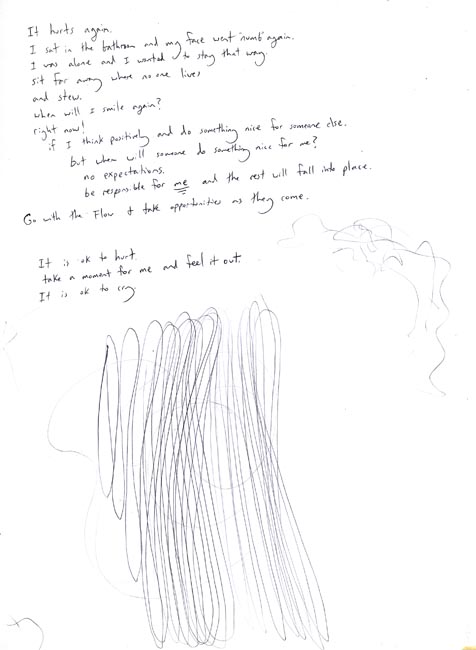 It hurts again.
I sat in the bathroom and my face went "numb" again.
I was alone and I wanted to stay that way.
sit far away where no one lives
and stew.
when will I smile again?
right now!
if I think positively and do something nice for someone else.
but when will someone do something nice for me?
no expectations.
be responsible for me and the rest will fall into place.
Go with the Flow & take opportunities as they come.
It is ok to hurt.
take a moment for me and feel it out.
It is ok to cry.